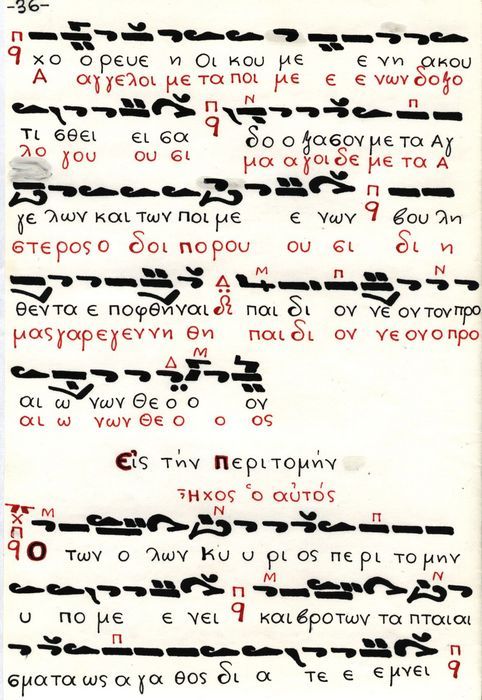 -36-
χο ο ρευε η Οι κου με ε νη ακου
Α αγγελοι με τα ποι με ε ε νων δοξο
τι σθει ει σα δο ο ξασον με τα Αγ
λο γου ου σι μα α γοι δε με τα Α
γε λων και των ποι με ε νων βου λη
στερος ο δοι πορου ου σι δι η
θεν τα ε ποφθηναι παι δι ον νε ον τον προ
μας γαρ εγεννη θη παι δι ον νε ον ο προ
αι ω νων Θε ο ο ον
αι ω νων Θε ο ο ος
Εἰς τήν Περιτομήν
Ἦχος ὁ αὐτός
Ο των ο λων Κυ υ ρι ος περι το μην
υ πο με ε νει και βροτων τα πται αι
σματα ως α γα θος δι α τε ε ε μνει